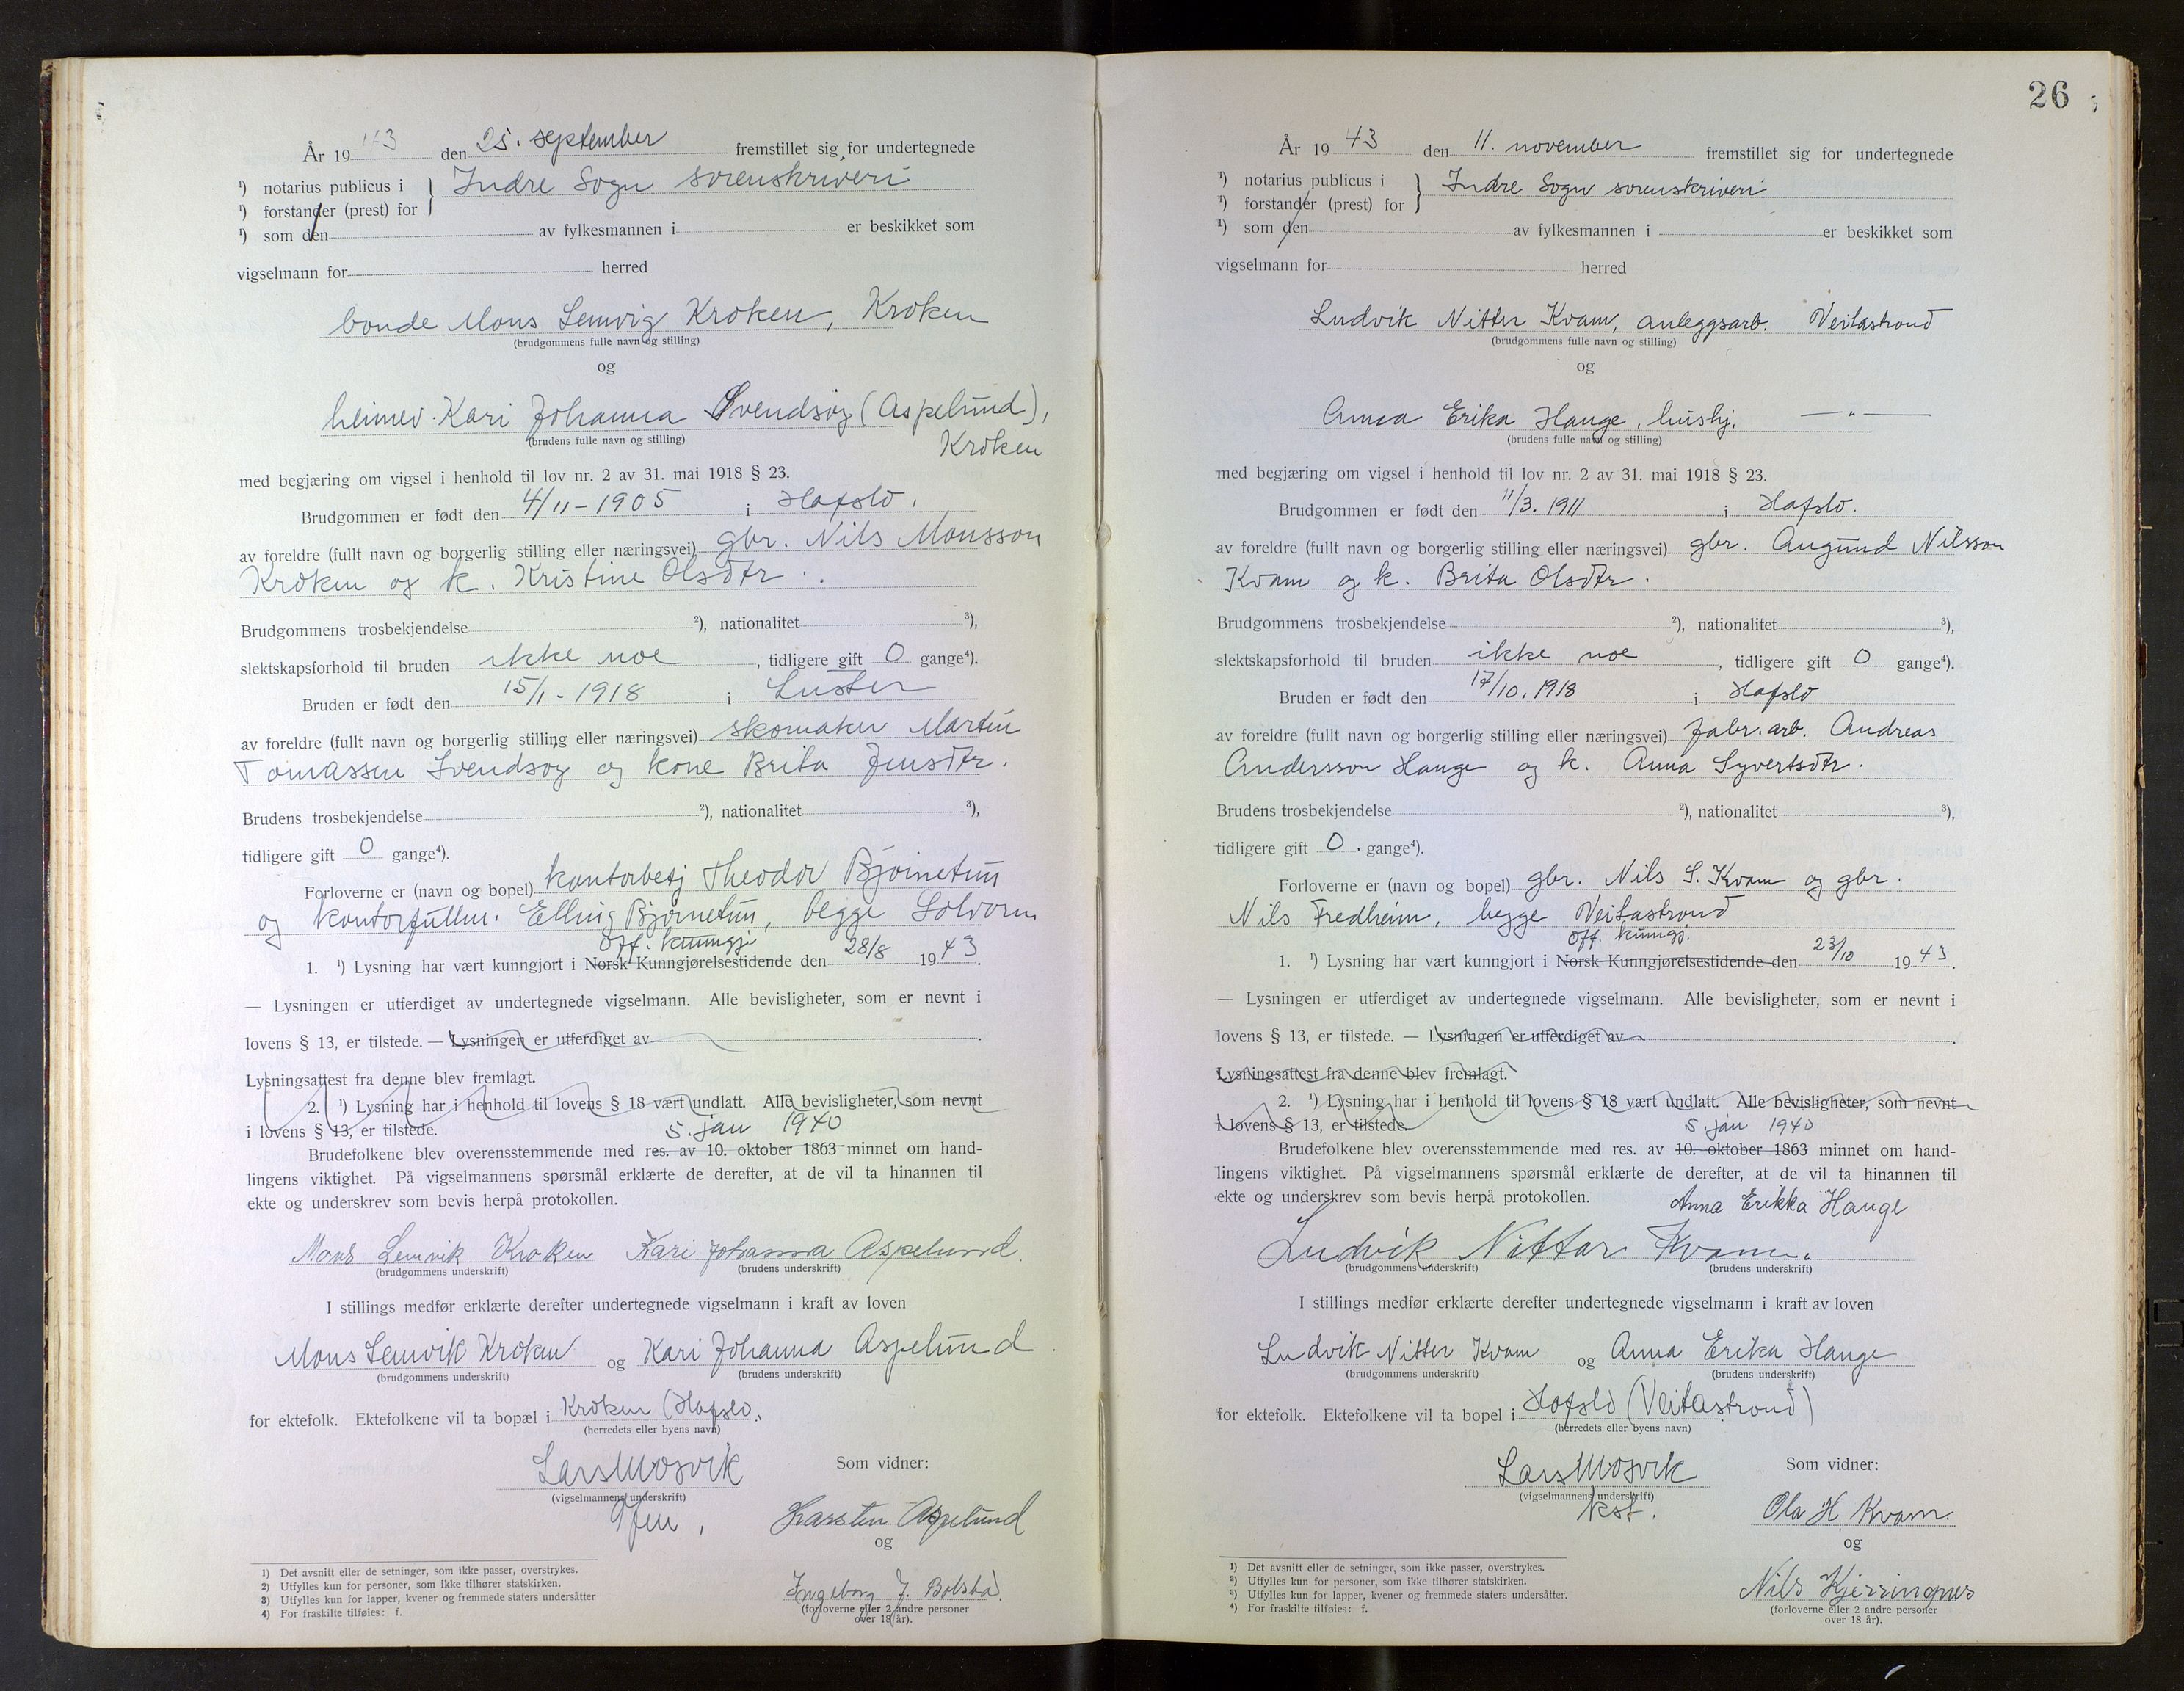 År 1943 den 25. september fremstillet sig for undertegnede
¹) notarius publicus i } Indre Sogn sorenskriveri
¹) forstander (prest) for
¹) som den av fylkesmannen i er beskikket som
vigselmann for herred
bonde Mons Lemvig Kroken, Kroken
(brudgommens fulle navn og stilling)
og
heimev. Kari Johanna Svendsøy (Aspelund),
(brudens fulle navn og stilling)
Kroken
med begjæring om vigsel i henhold til lov nr. 2 av 31. mai 1918 § 23.
Brudgommen er født den 4/11-1905 i Hafslo.
av foreldre (fullt navn og borgerlig stilling eller næringsvei) gbr. Nils Monsson
Kroken og k. Kristine Olsdtr.
Brudgommens trosbekjendelse ²), nationalitet ³),
slektskapsforhold til bruden ikke noe, tidligere gift 0 gange⁴).
Bruden er født den 15/1-1918 i Luster
av foreldre (fullt navn og borgerlig stilling eller næringsvei) skomaker Martin
Tomassen Svendsøy og kone Brita Jensdtr.
Brudens trosbekjendelse ²), nationalitet ³),
tidligere gift 0 gange⁴).
Forloverne er (navn og bopel) kontorbetj Theodor Bjørnetun
og kontorfullm. Elling Bjørnetun, begge Solvorn
Off. kunngj.
1. ¹) Lysning har vært kunngjort i Norsk Kunngjørelsestidende den 28/8 1943.
— Lysningen er utferdiget av undertegnede vigselmann. Alle bevisligheter, som er nevnt i
lovens § 13, er tilstede. — Lysningen er utferdiget av
Lysningsattest fra denne blev fremlagt.
2. ¹) Lysning har i henhold til lovens § 18 vært undlatt. Alle bevisligheter, som nevnt
i lovens § 13, er tilstede.
5. jan 1940
Brudefolkene blev overensstemmende med res. av 10. oktober 1863 minnet om hand-
lingens viktighet. På vigselmannens spørsmål erklærte de derefter, at de vil ta hinannen til
ekte og underskrev som bevis herpå protokollen.
Mons Lemvik Kroken Kari Johanna Aspelund.
(brudgommens underskrift) (brudens underskrift)
I stillings medfør erklærte derefter undertegnede vigselmann i kraft av loven
Mons Lemvik Kroken og Kari Johanna Aspelund
(brudgommens underskrift) (brudens underskrift)
for ektefolk. Ektefolkene vil ta bopæl i Kroken (Hafslo.
(herredets eller byens navn)
Lars Mosvik
Som vidner:
(vigselmannens underskrift)
Karsten Aspelund
og
Ingeborg J. Bolstad.
(forloverne eller 2 andre personer
over 18 år).
1) Det avsnitt eller de setninger, som ikke passer, overstrykes.
2) Utfylles kun for personer, som ikke tilhører statskirken.
3) Utfylles kun for lapper, kvener og fremmede staters undersåtter
4) For fraskilte tilføies: f.
26
År 1943 den 11. november fremstillet sig for undertegnede
¹) notarius publicus i } Indre Sogn sorenskriveri
¹) forstander (prest) for
¹) som den av fylkesmannen i er beskikket som
vigselmann for herred
Ludvik Nitter Kvam, anleggsarb. Veitastrond
(brudgommens fulle navn og stilling)
og
Anna Erika Hauge, hushj. — " —
(brudens fulle navn og stilling)
med begjæring om vigsel i henhold til lov nr. 2 av 31. mai 1918 § 23.
Brudgommen er født den 11/3. 1911 i Hafslo.
av foreldre (fullt navn og borgerlig stilling eller næringsvei) gbr. Augund Nilsson
Kvam og k. Brita Olsdtr.
Brudgommens trosbekjendelse ²), nationalitet ³),
slektskapsforhold til bruden ikke noe, tidligere gift 0 gange⁴).
Bruden er født den 17/10. 1918 i Hafslo
av foreldre (fullt navn og borgerlig stilling eller næringsvei) fabr. arb. Andreas
Andersson Hauge og k. Anna Syvertsdtr.
Brudens trosbekjendelse ²), nationalitet ³),
tidligere gift 0. gange⁴).
Forloverne er (navn og bopel) gbr. Nils S. Kvam og gbr.
Nils Fredheim, begge Veitastrond
Off. kunngj.
1. ¹) Lysning har vært kunngjort i Norsk Kunngjørelsestidende den 23/10 1943.
— Lysningen er utferdiget av undertegnede vigselmann. Alle bevisligheter, som er nevnt i
lovens § 13, er tilstede. — Lysningen er utferdiget av
Lysningsattest fra denne blev fremlagt.
2. ¹) Lysning har i henhold til lovens § 18 vært undlatt. Alle bevisligheter, som nevnt
i lovens § 13, er tilstede.
5. jan 1940
Brudefolkene blev overensstemmende med res. av 10. oktober 1863 minnet om hand-
lingens viktighet. På vigselmannens spørsmål erklærte de derefter, at de vil ta hinannen til
ekte og underskrev som bevis herpå protokollen.
Anna Erikka Hauge
Ludvik Nitter Kvam.
(brudgommens underskrift) (brudens underskrift)
I stillings medfør erklærte derefter undertegnede vigselmann i kraft av loven
Ludvik Nitter Kvam og Anna Erika Hauge
(brudgommens underskrift) (brudens underskrift)
for ektefolk. Ektefolkene vil ta bopel i Hafslo (Veitastrond)
(herredets eller byens navn)
Lars Mosvik
Som vidner:
(vigselmannens underskrift)
kst.
Ola H Kvam.
og
Nils Kjerringnes
(forloverne eller 2 andre personer
over 18 år).
1) Det avsnitt eller de setninger, som ikke passer, overstrykes.
2) Utfylles kun for personer, som ikke tilhører statskirken.
3) Utfylles kun for lapper, kvener og fremmede staters undersåtter.
4) For fraskilte tilføies: f.